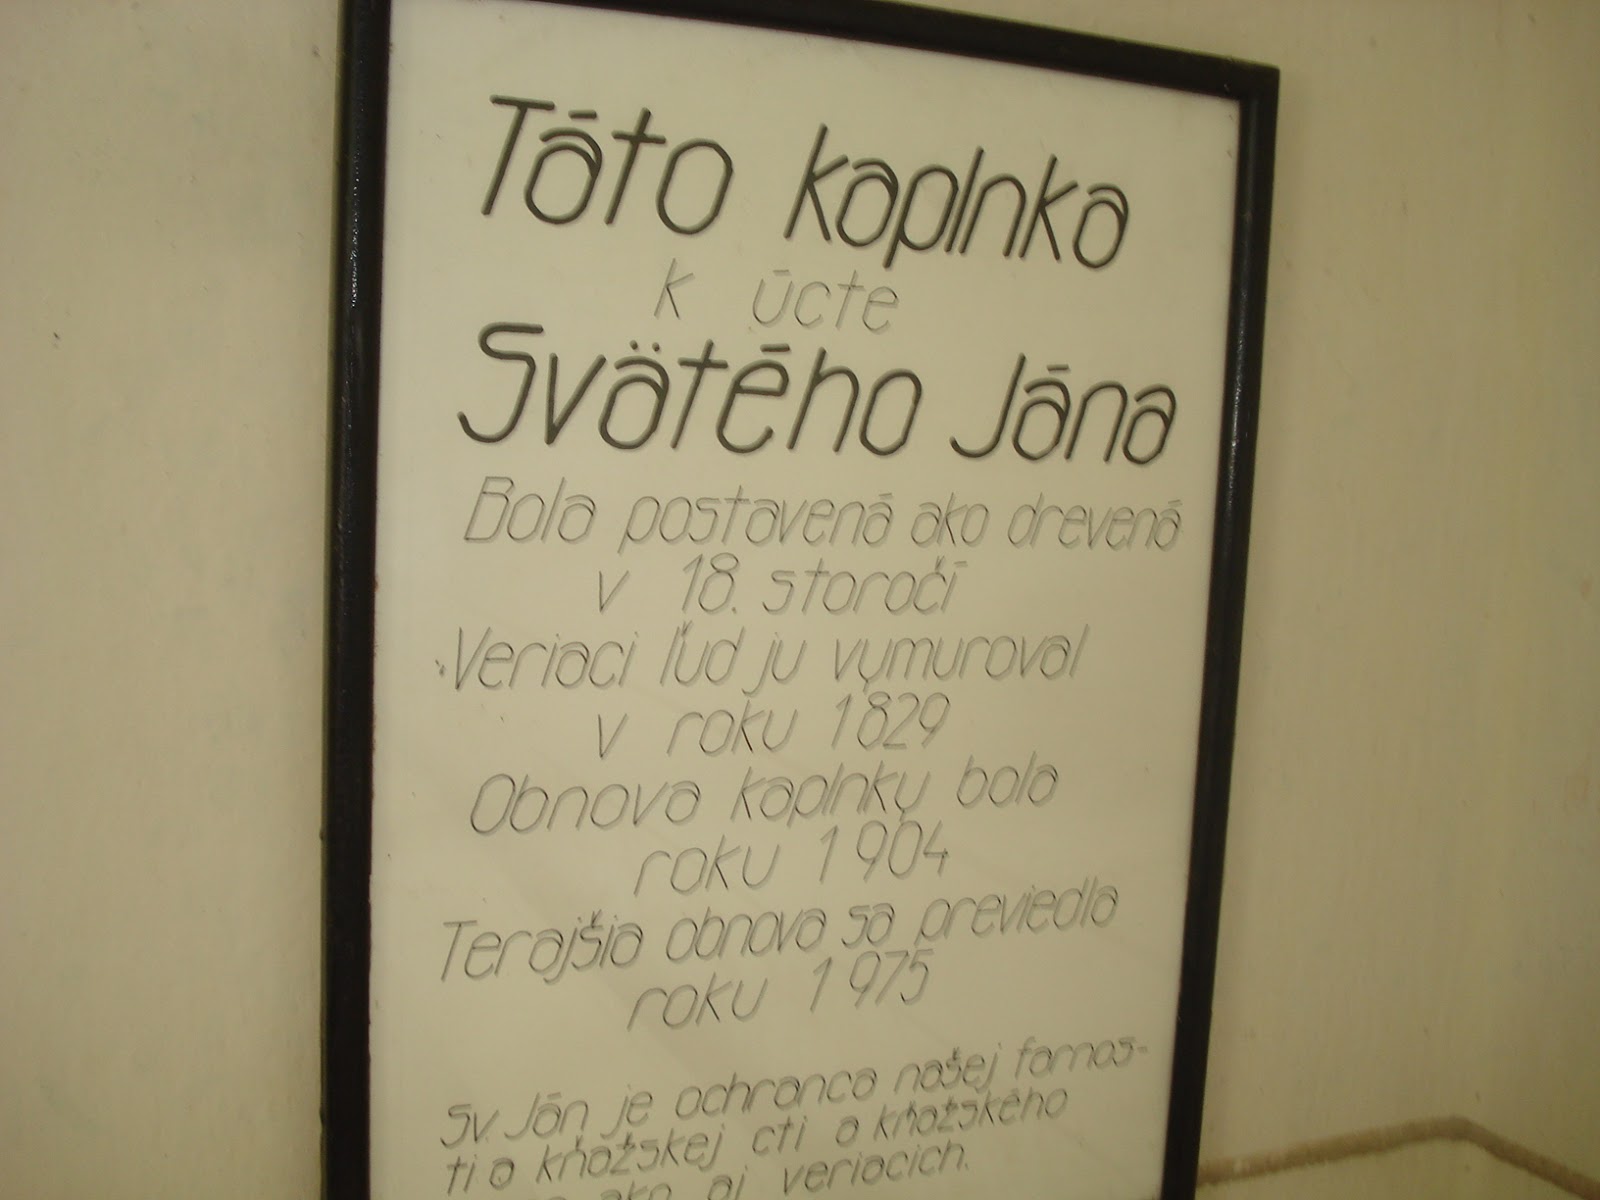 Táto kaplnka
k úcte
Svätého Jána
Bola postavená ako drevená
v 18. storočí
Veriaci ľud ju vymuroval
v roku 1829
Obnova kaplnky bola
roku 1904
Terajšia obnova sa previedla
roku 1975
Sv. Ján je ochranca našej farnos-
ti a kňažskej cti a kňažského
ako aj veriacich.